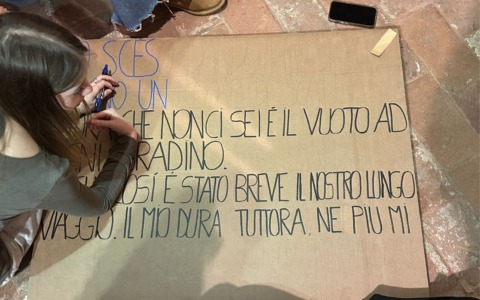 SCES
UN
CHE NON CI SEI É IL VUOTO AD
RADINO.
OSÍ É STATO BREVE IL NOSTRO LUNGO
VIAGGIO. IL MIO DURA TUTTORA, NE PIÚ MI